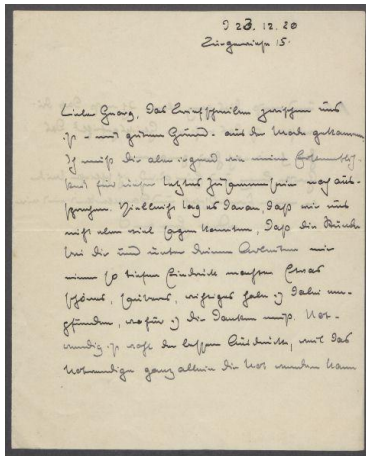 D 23.12.20
15.
Lieber Georg, das Briefschreiben zwischen uns
ist - mit gutem Grund - aus der Mode gekommen
Ich muß dir aber irgend wie meine
für unser letztes Zusammensein noch aus-
sprechen. Vielleicht lag es daran, daß wir uns
nicht allein viel sagen konnten, daß die Stunden
bei dir und unter deinen Arbeiten mir
einen so tiefen Eindruck machten Etwas
schönes, heiteres, wichtiges habe ich dabei em-
pfunden, wofür ich dir danken muß. Not-
wendig ist wohl der bessere Ausdruck, weil das
Notwendige ganz allein die Not wenden kann